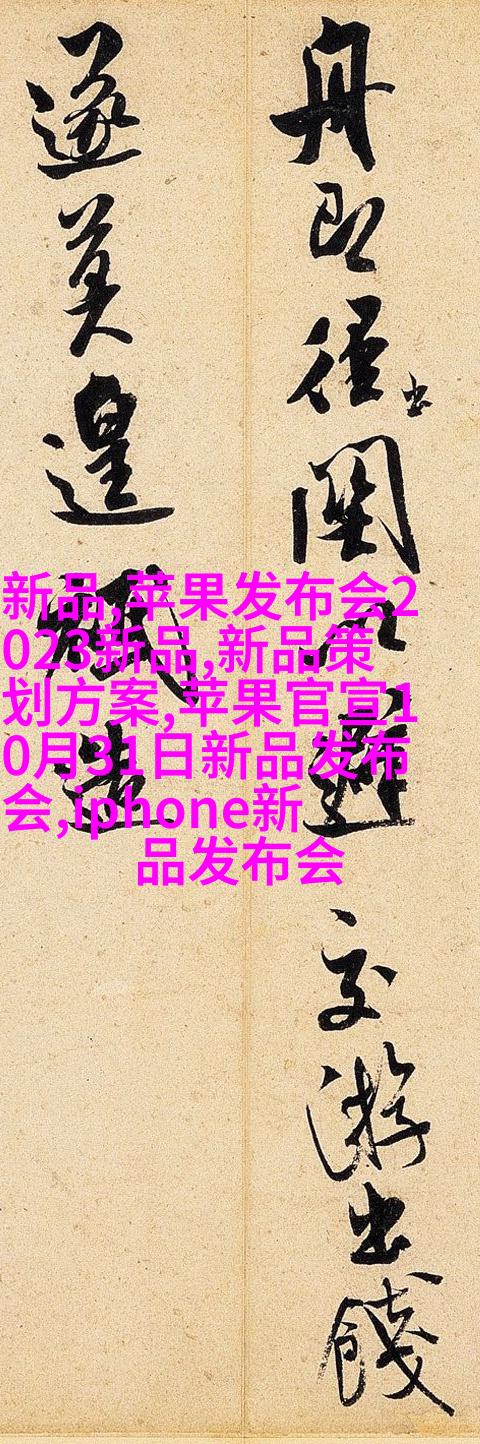 舟即径出關以避交游出餞
遂莫遑 造
新品,苹果发布会2
023新品,新品策
划方案,苹果官宣1
0月31日新品发布
会,iphone新
品发布会